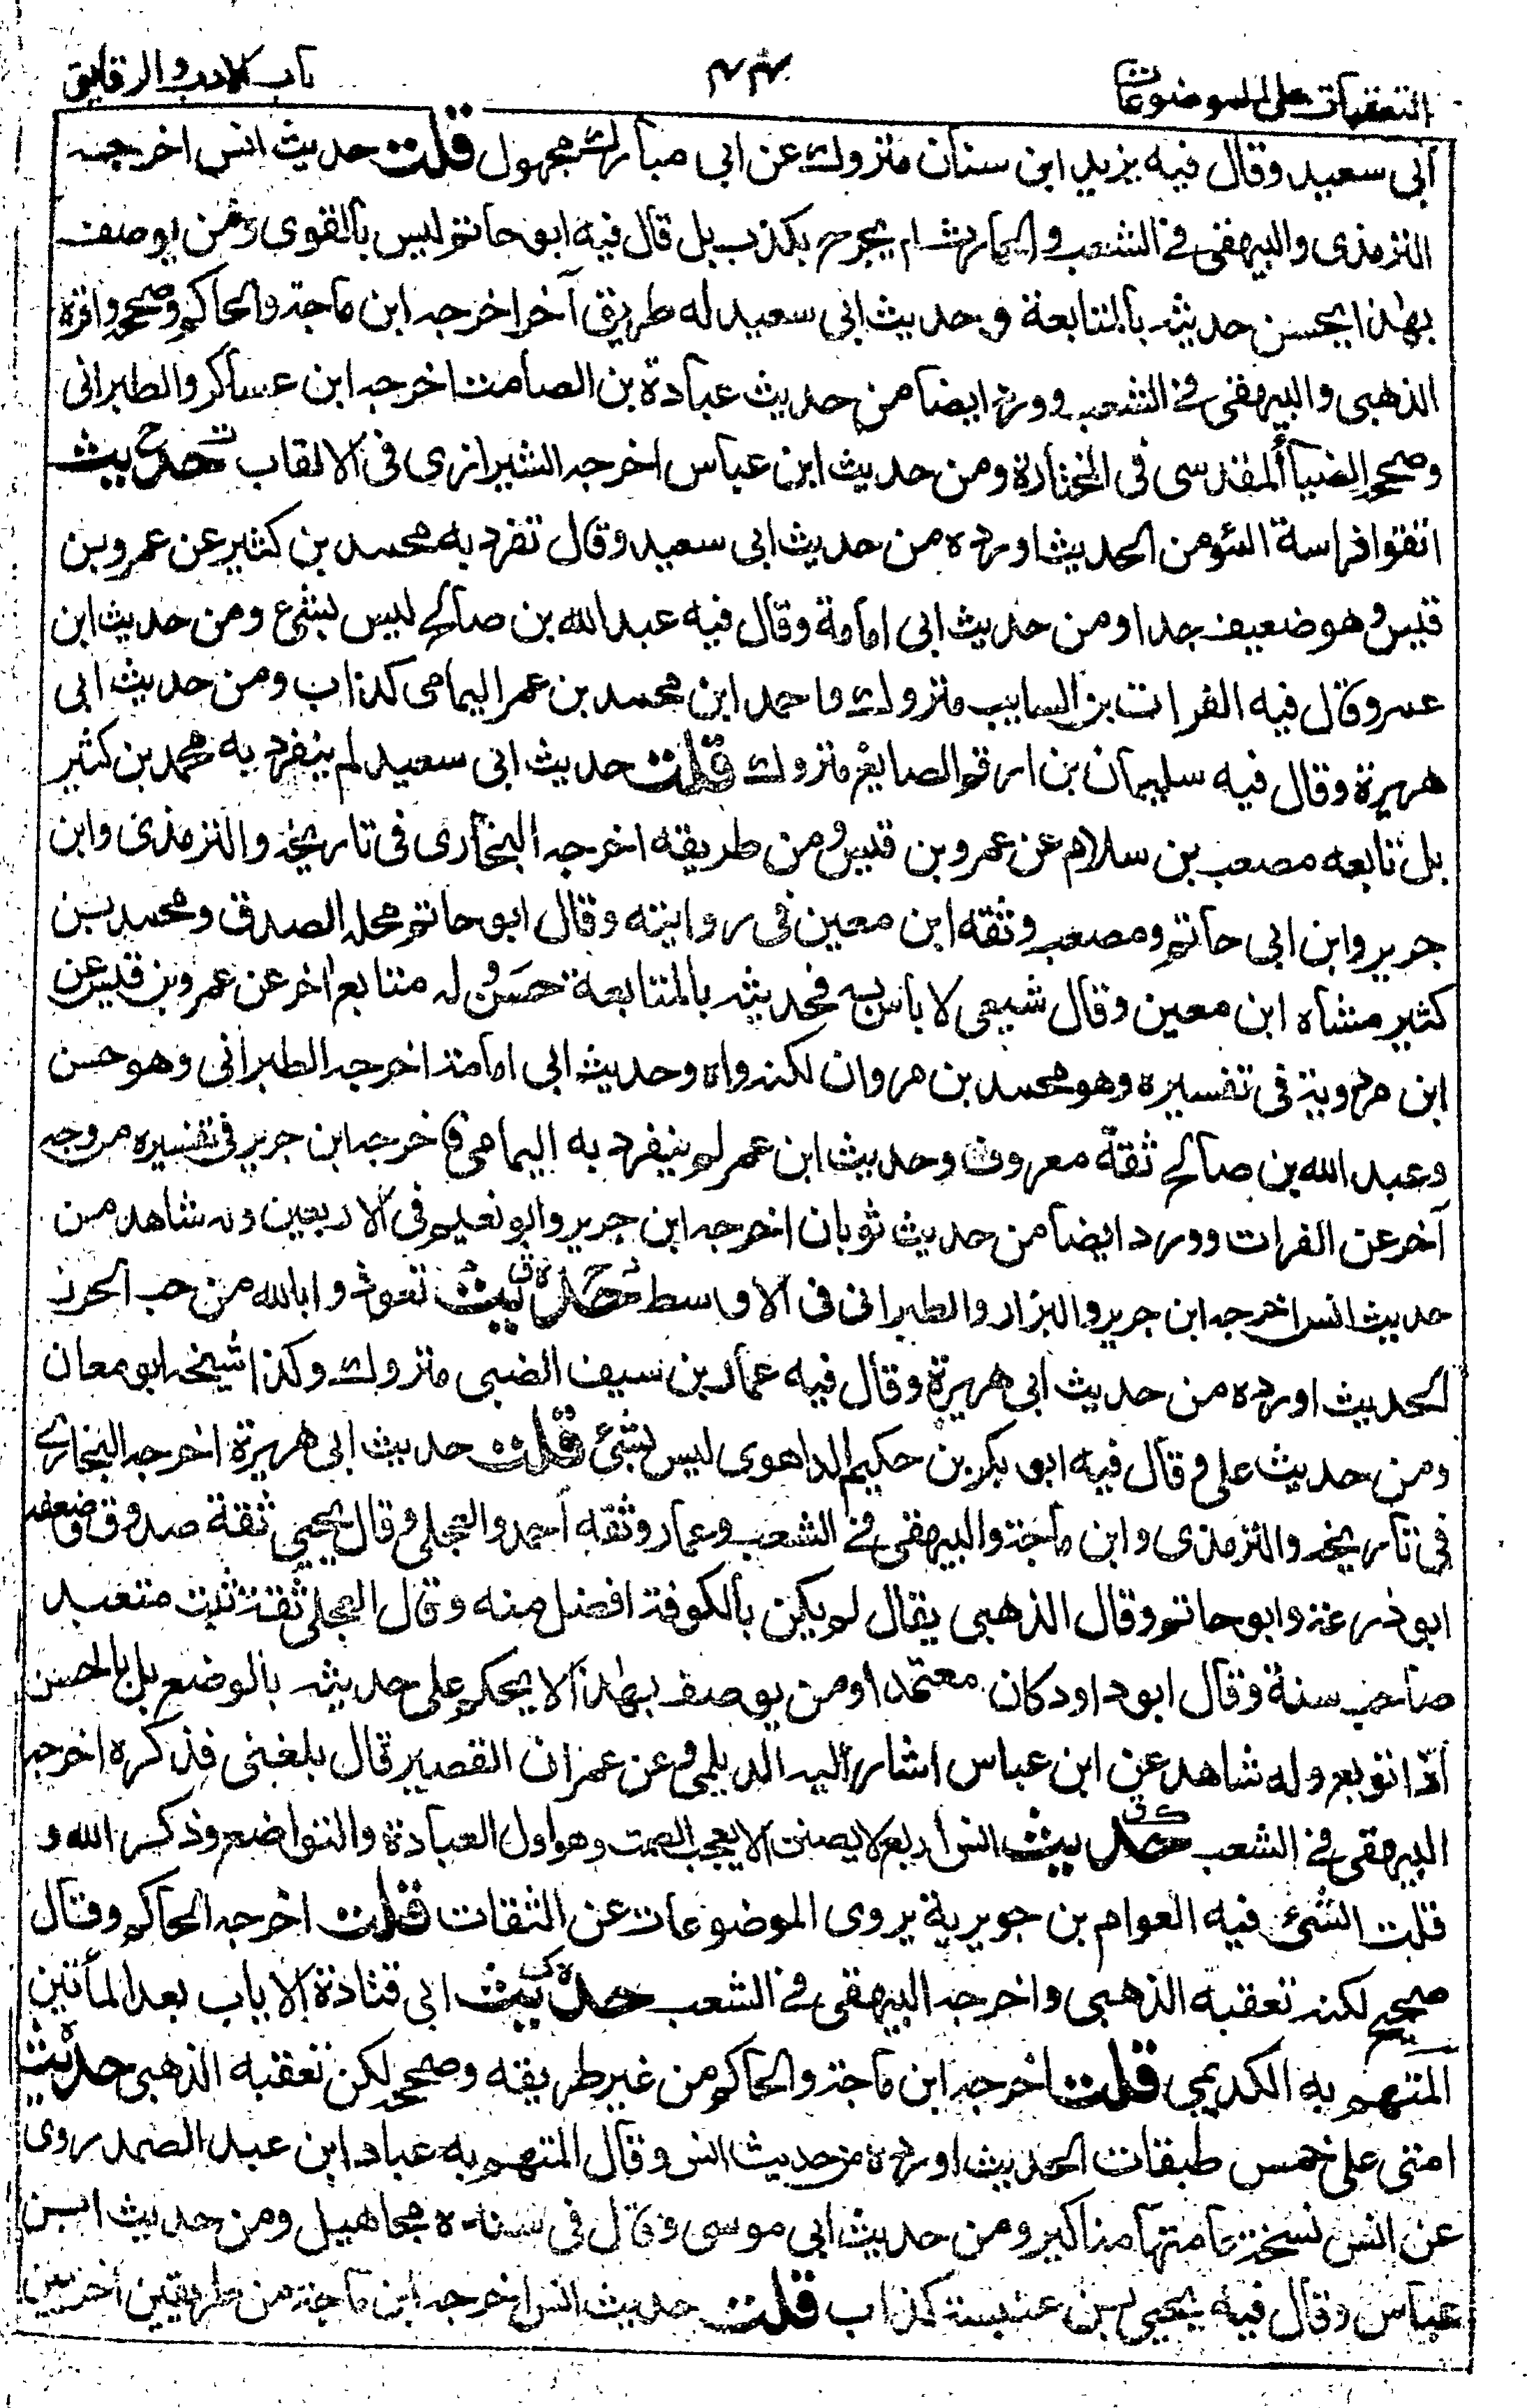 التعقبات على الموضوعات
باب الادب والرقايق
أبى سعيد وقال فيه يزيد ابن سنان متروك عن ابى مبارك مجهول قلت حديث انس اخرجه
الترمذى والبيهقى فى الشعب و لم يجرح بكذب بل قال فيه ابو حاتم ليس بالقوى ومن يوصف
بهذا يحسن حديثه بالمتابعة و حديث ابى سعيد له طريق آخر اخرجه ابن ماجة والحاكم وصححه واقره
الذهبى والبيهقى فى الشعب وورد ايضا من حديث عبادة بن الصامت اخرجه ابن عساكر والطبرانى
وصححه الضيأ المقدسى فى المختارة ومن حديث ابن عباس اخرجه الشيرازى فى الالقاب حديث
اتقوا فراسة المؤمن الحديث اورده من حديث ابى سعيد وقال تفرد به محمد بن كثير عن عمرو بن
قيس وهو ضعيف جدا ومن حديث ابى امامة وقال فيه عبد الله بن صالح ليس بشئ ومن حديث ابن
عمر وقال فيه الفرات بن السايب متروك واحمد ابن محمد بن عمر اليمامى كذاب ومن حديث ابى
هريرة وقال فيه سليمان بن ارقم الصايغ متروك قلت حديث ابى سعيد لم ينفرد به محمد بن كثير
بل تابعه مصعب بن سلام عن عمرو بن قيس ومن طريقه اخرجه البخارى فى تاريخه والترمذى وابن
جرير وابن ابى حاتم ومصعب وثقه ابن معين فى روايته وقال ابو حاتم محله الصدق ومحمد بن
كثير مشاه ابن معين وقال شيعى لا باس به فحديثه بالمتابعة حسن وله متابع اخر عن عمرو بن قيس عن
ابن مردوية فى تفسيره وهو محمد بن مروان لكنه واه وحديث ابى امامة اخرجه الطبرانى وهو حسن
وعبد الله بن صالح ثقة معروف وحديث ابن عمر لم ينفرد به اليمامى فاخرجه ابن جرير فى تفسيره من وجه
آخر عن الفرات وورد ايضا من حديث ثوبان اخرجه ابن جرير وابو نعيم فى الاربعين وله شاهد من
حديث انس اخرجه ابن جرير والبزار والطبرانى فى الاوسط حديث تعوذوا بالله من جب الحزن
الحديث اورده من حديث ابى هريرة وقال فيه عمار بن سيف الضبى متروك وكذا شيخه ابو معان
ومن حديث على وقال فيه ابو بكر بن حكيم الداهرى ليس بشئ قلت حديث ابى هريرة اخرجه البخارى
فى تاريخه والترمذى وابن ماجة والبيهقى فى الشعب وعمار وثقه احمد والعجلى وقال يحيى ثقة صدوق وضعفه
ابو ذرعة وابو حاتم وقال الذهبى يقال لم يكن بالكوفة افضل منه وقال العجلى ثقة ثبت متعبد
صاحب سنة وقال ابو داود كان معتمدا ومن يوصف بهذا لا يحكم على حديثه بالوضع بل بالحسن
اذا توبع وله شاهد عن ابن عباس اشار اليه الديلمى وعن عمران القصير قال بلغنى فذكره اخرجه
البيهقى فى الشعب حديث انس اربع لا يصبن الا بعجب الصمت وهو اول العبادة والتواضع وذكر الله و
قلت الشئ فيه العوام بن جويرية يروى الموضوعات عن الثقات قلت اخرجه الحاكم وقال
صحيح لكنه تعقبه الذهبى واخرجه البيهقى فى الشعب حديث ابى قتادة الايات بعد المأتين
المتهم به الكديمى قلت اخرجه ابن ماجة والحاكم من غير طريقه وصححه لكن تعقبه الذهبى حديث
امتى على خمس طبقات الحديث اورده من حديث انس وقال المتهم به عباد ابن عبد الصمد روى
عن انس نسخة عامتها مناكير ومن حديث ابى موسى وقال فى سنده مجاهيل ومن حديث ابن
عباس وقال فيه يحيى بن عنبسة كذاب قلت حديث انس اخرجه ابن ماجة من طريقين أخريين